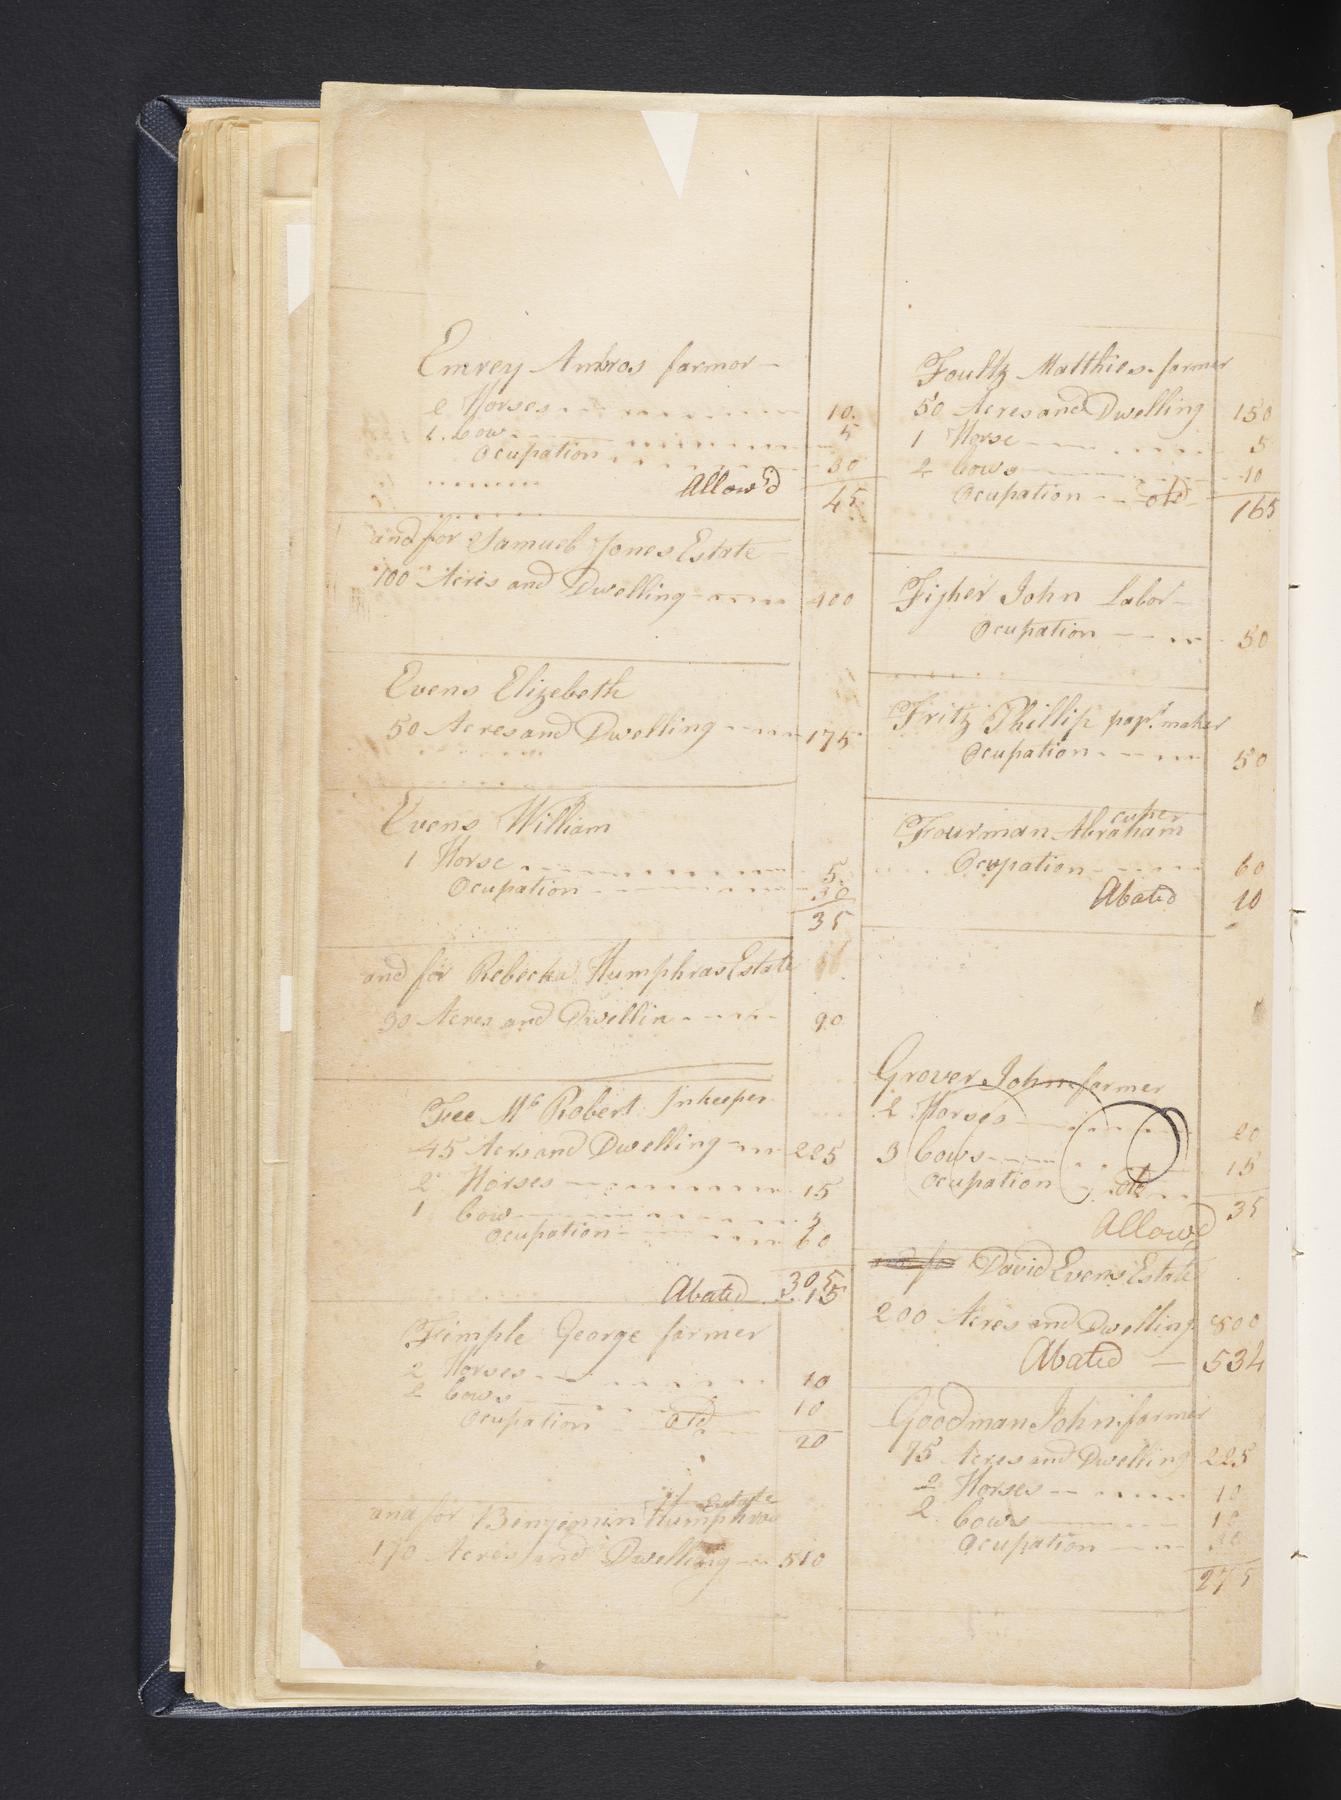 Emrey Ambros farmor
2 Horses 10
1 Cow 5
Ocupation 30
Allow'd 45
and for Samuel Jones Estate
100 Acres and Dwelling 400
Evens Elizebeth
50 Acres and Dwelling 175
Evens William
1 Horse 5
Ocupation 30
35
and for Rebecka Humphras Estate
30 Acres and Dwellin 90
Fee Mc Robert Inkeeper
45 Acrs and Dwelling 225
2 Horses 15
1 Cow 5
Ocupation 60
305
Abated 15
Fimple George farmer
2 Horses 10
2 Cows 10
Ocupation old
20
and for Benjemin Humphras Estate
170 Acres and Dwelling 510
Foultz Matthies farmer
50 Acres and Dwelling 150
1 Horse 5
2 Cows 10
Ocupation old 165
Fisher John Labor
Ocupation 50
Fritz Phillip papr. maker
Ocupation 50
Fourman Abraham cuper
Ocupation 60
Abated 10
Grover John farmer
2 Horses 20
3 Cows 15
Ocupation old
35
Allowd
and for David Evens Estate
200 Acres and Dwelling 800
Abated 534
Goodman John farmer
75 Acres and Dwelling 225
2 Horses 10
2 Cows 10
Ocupation 30
275